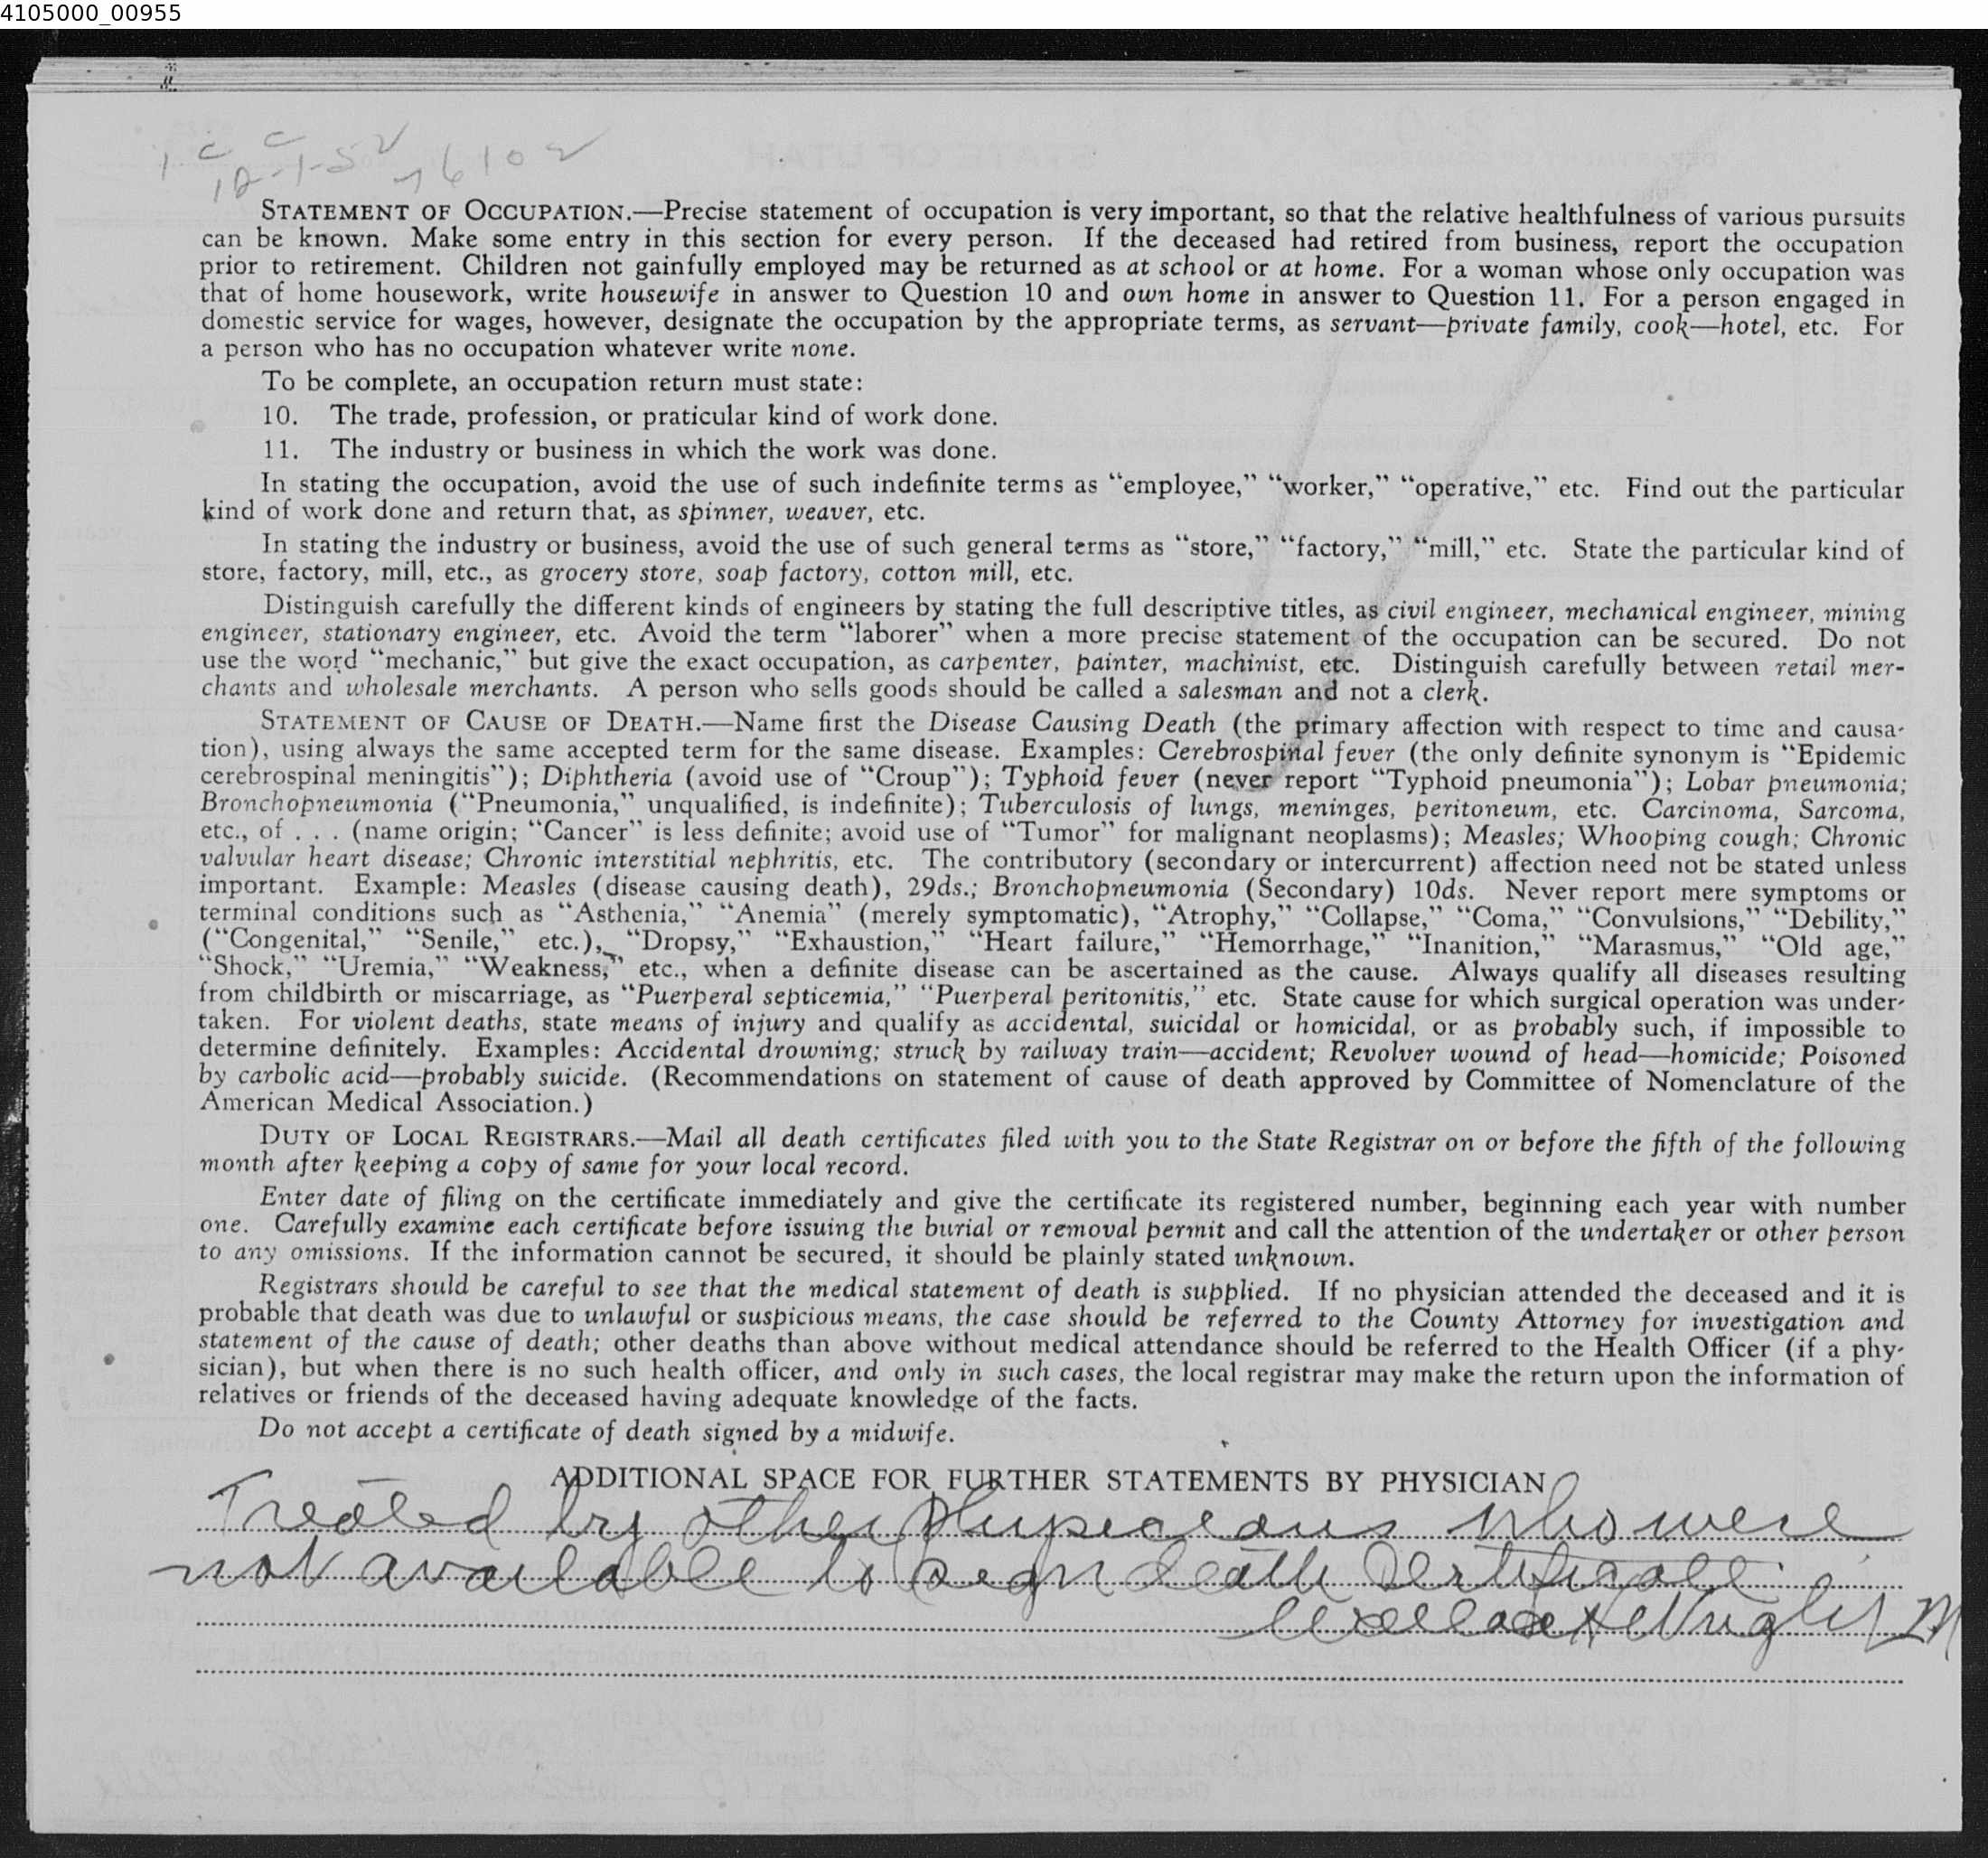 4105000_00955
1 c c
12-1-52 76102
STATEMENT OF OCCUPATION.—Precise statement of occupation is very important, so that the relative healthfulness of various pursuits
can be known. Make some entry in this section for every person. If the deceased had retired from business, report the occupation
prior to retirement. Children not gainfully employed may be returned as at school or at home. For a woman whose only occupation was
that of home housework, write housewife in answer to Question 10 and own home in answer to Question 11. For a person engaged in
domestic service for wages, however, designate the occupation by the appropriate terms, as servant—private family, cook—hotel, etc. For
a person who has no occupation whatever write none.
To be complete, an occupation return must state:
10. The trade, profession, or praticular kind of work done.
11. The industry or business in which the work was done.
In stating the occupation, avoid the use of such indefinite terms as “employee,” “worker,” “operative,” etc. Find out the particular
kind of work done and return that, as spinner, weaver, etc.
In stating the industry or business, avoid the use of such general terms as “store,” “factory,” “mill,” etc. State the particular kind of
store, factory, mill, etc., as grocery store, soap factory, cotton mill, etc.
Distinguish carefully the different kinds of engineers by stating the full descriptive titles, as civil engineer, mechanical engineer, mining
engineer, stationary engineer, etc. Avoid the term “laborer” when a more precise statement of the occupation can be secured. Do not
use the word “mechanic,” but give the exact occupation, as carpenter, painter, machinist, etc. Distinguish carefully between retail mer-
chants and wholesale merchants. A person who sells goods should be called a salesman and not a clerk.
STATEMENT OF CAUSE OF DEATH.—Name first the Disease Causing Death (the primary affection with respect to time and causa-
tion), using always the same accepted term for the same disease. Examples: Cerebrospinal fever (the only definite synonym is “Epidemic
cerebrospinal meningitis”); Diphtheria (avoid use of “Croup”); Typhoid fever (never report “Typhoid pneumonia”); Lobar pneumonia;
Bronchopneumonia (“Pneumonia,” unqualified, is indefinite); Tuberculosis of lungs, meninges, peritoneum, etc. Carcinoma, Sarcoma,
etc., of . . . (name origin; “Cancer” is less definite; avoid use of “Tumor” for malignant neoplasms); Measles; Whooping cough; Chronic
valvular heart disease; Chronic interstitial nephritis, etc. The contributory (secondary or intercurrent) affection need not be stated unless
important. Example: Measles (disease causing death), 29ds.; Bronchopneumonia (Secondary) 10ds. Never report mere symptoms or
terminal conditions such as “Asthenia,” “Anemia” (merely symptomatic), “Atrophy,” “Collapse,” “Coma,” “Convulsions,” “Debility,”
(“Congenital,” “Senile,” etc.), “Dropsy,” “Exhaustion,” “Heart failure,” “Hemorrhage,” “Inanition,” “Marasmus,” “Old age,”
“Shock,” “Uremia,” “Weakness,” etc., when a definite disease can be ascertained as the cause. Always qualify all diseases resulting
from childbirth or miscarriage, as “Puerperal septicemia,” “Puerperal peritonitis,” etc. State cause for which surgical operation was under-
taken. For violent deaths, state means of injury and qualify as accidental, suicidal or homicidal, or as probably such, if impossible to
determine definitely. Examples: Accidental drowning; struck by railway train—accident; Revolver wound of head—homicide; Poisoned
by carbolic acid—probably suicide. (Recommendations on statement of cause of death approved by Committee of Nomenclature of the
American Medical Association.)
DUTY OF LOCAL REGISTRARS.—Mail all death certificates filed with you to the State Registrar on or before the fifth of the following
month after keeping a copy of same for your local record.
Enter date of filing on the certificate immediately and give the certificate its registered number, beginning each year with number
one. Carefully examine each certificate before issuing the burial or removal permit and call the attention of the undertaker or other person
to any omissions. If the information cannot be secured, it should be plainly stated unknown.
Registrars should be careful to see that the medical statement of death is supplied. If no physician attended the deceased and it is
probable that death was due to unlawful or suspicious means, the case should be referred to the County Attorney for investigation and
statement of the cause of death; other deaths than above without medical attendance should be referred to the Health Officer (if a phy-
sician), but when there is no such health officer, and only in such cases, the local registrar may make the return upon the information of
relatives or friends of the deceased having adequate knowledge of the facts.
Do not accept a certificate of death signed by a midwife.
ADDITIONAL SPACE FOR FURTHER STATEMENTS BY PHYSICIAN
Treated by other Physicians who were
not available to sign death Certificate.
Wright M